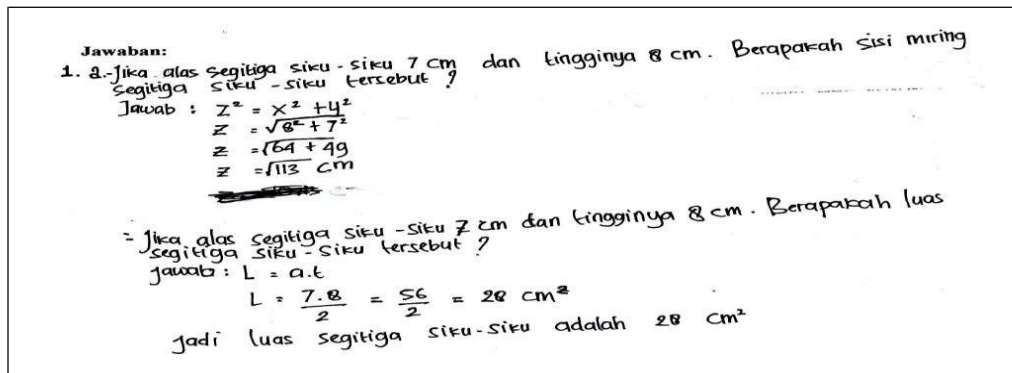 Jawaban:
1. a.-Jika alas segitiga siku-siku 7 cm dan tingginya 8 cm. Berapakah sisi miring
segitiga siku-siku tersebut?
Jawab : Z² = x² + y²
Z = √8² + 7²
Z = √64 + 49
Z = √113 cm
- Jika alas segitiga siku-siku 7 cm dan tingginya 8 cm. Berapakah luas
segitiga siku-siku tersebut?
Jawab : L = a.t
L = 7.8/2 = 56/2 = 28 cm²
Jadi luas segitiga siku-siku adalah 28 cm²